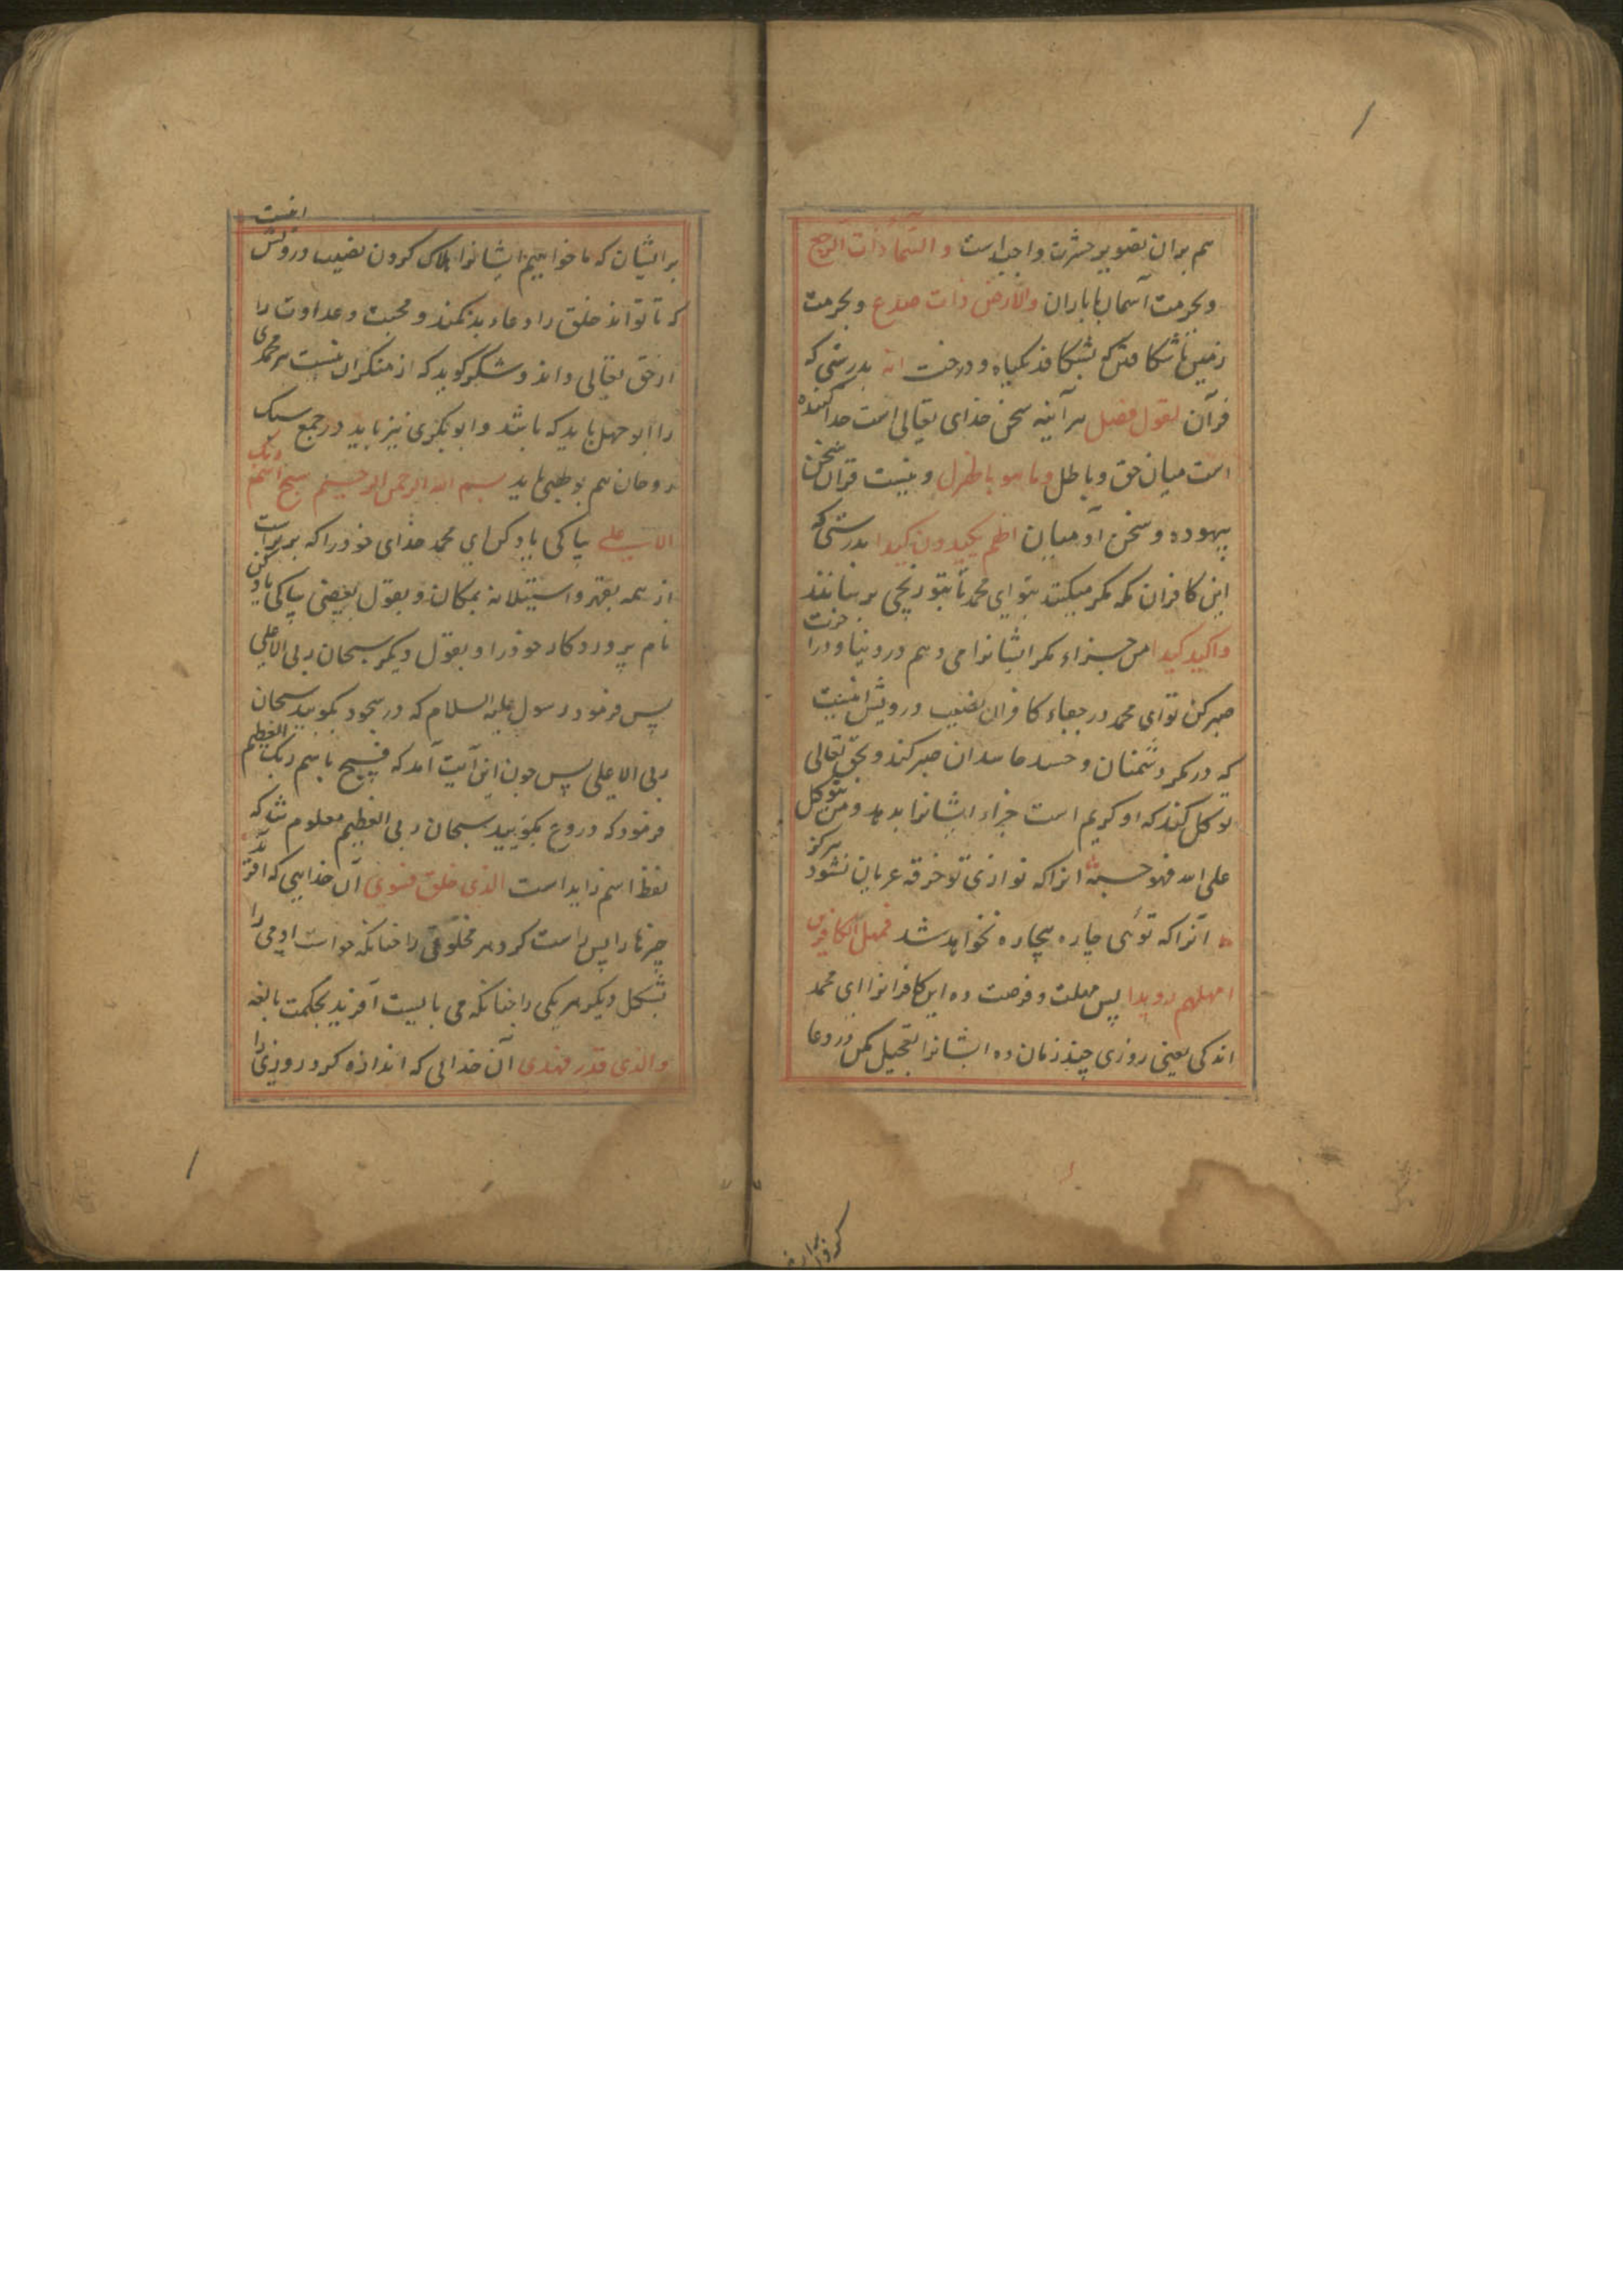 هم بران تصویر حشرت واجب است والسماء ذات الرجع
وبحرمت آسمان با باران والارض ذات صدع وبحرمت
زمین باشکافتن که بشکافد بکیاه ودرخت انه بدرستی که
قرآن لقول فصل هرآینه سخن خدای تعالی است جدا کننده
است میان حق وباطل وما هو بالهزل ونیست قرآن سخن
بیهوده وسخن آدمیان انهم یکیدون کیدا بدرستی که
این کافران مکه مکر میکنند بتو ای محمد تا بتو رنجی برسانند
واکید کیدا من جزاء مکر ایشانرا می دهم در دنیا ودر آخرت
صبر کن تو ای محمد در جفاء کافران نصیب درویش اینست
که در مکر دشمنان وحسد حاسدان صبر کند وبحق تعالی
توکل کند که او کریم است جزاء ایشانرا بدهد ومن یتوکل
علی الله فهو حسبه انرا که نوازی تو خرقه عریان نشود هرکز
آنرا که توئی چاره بیچاره نخواهد شد فمهل الکافرین
امهلهم رویدا پس مهلت وفرصت ده این کافرانرا ای محمد
اندکی یعنی روزی چند زمان ده ایشانرا تعجیل مکن در دعا
برایشان که ما خواهیم ایشانرا هلاک کردن نصیب درویش اینست
که تا تواند خلق را دعاء بد نکند ومحبت وعداوت را
از حق تعالی داند وشکر گوید که از منکران نیست هر محمدی
را ابوجهل باید که باشد وابوبکری نیز باید در جمع سبک
روحان هم بولهبی باید بسم الله الرحمن الرحیم سبح اسم ربک
الاعلی پاکی یاد کن ای محمد خدای خود را که برتراست
از همه بقهر واستیلا نه بمکان وبقول بعضی پاکی یاد کن
نام پروردکار خود را وبقول دیکر سبحان ربی الاعلی
پس فرمود رسول علیه السلام که در سجود بکویید سبحان
ربی الاعلی پس چون این آیت آمد که فسبح باسم ربک العظیم
فرمود که در رکوع بکویید سبحان ربی العظیم معلوم شد که
لفظ اسم زاید است الذی خلق فسوی آن خدایی که آفرید
چیزها را پس راست کرد هر مخلوقی را چنانکه خواست آدمی را
بشکل دیکر هر یکی را چنانکه می بایست آفرید بحکمت بالغه
والذی قدر فهدی آن خدایی که اندازه کرد روزی را